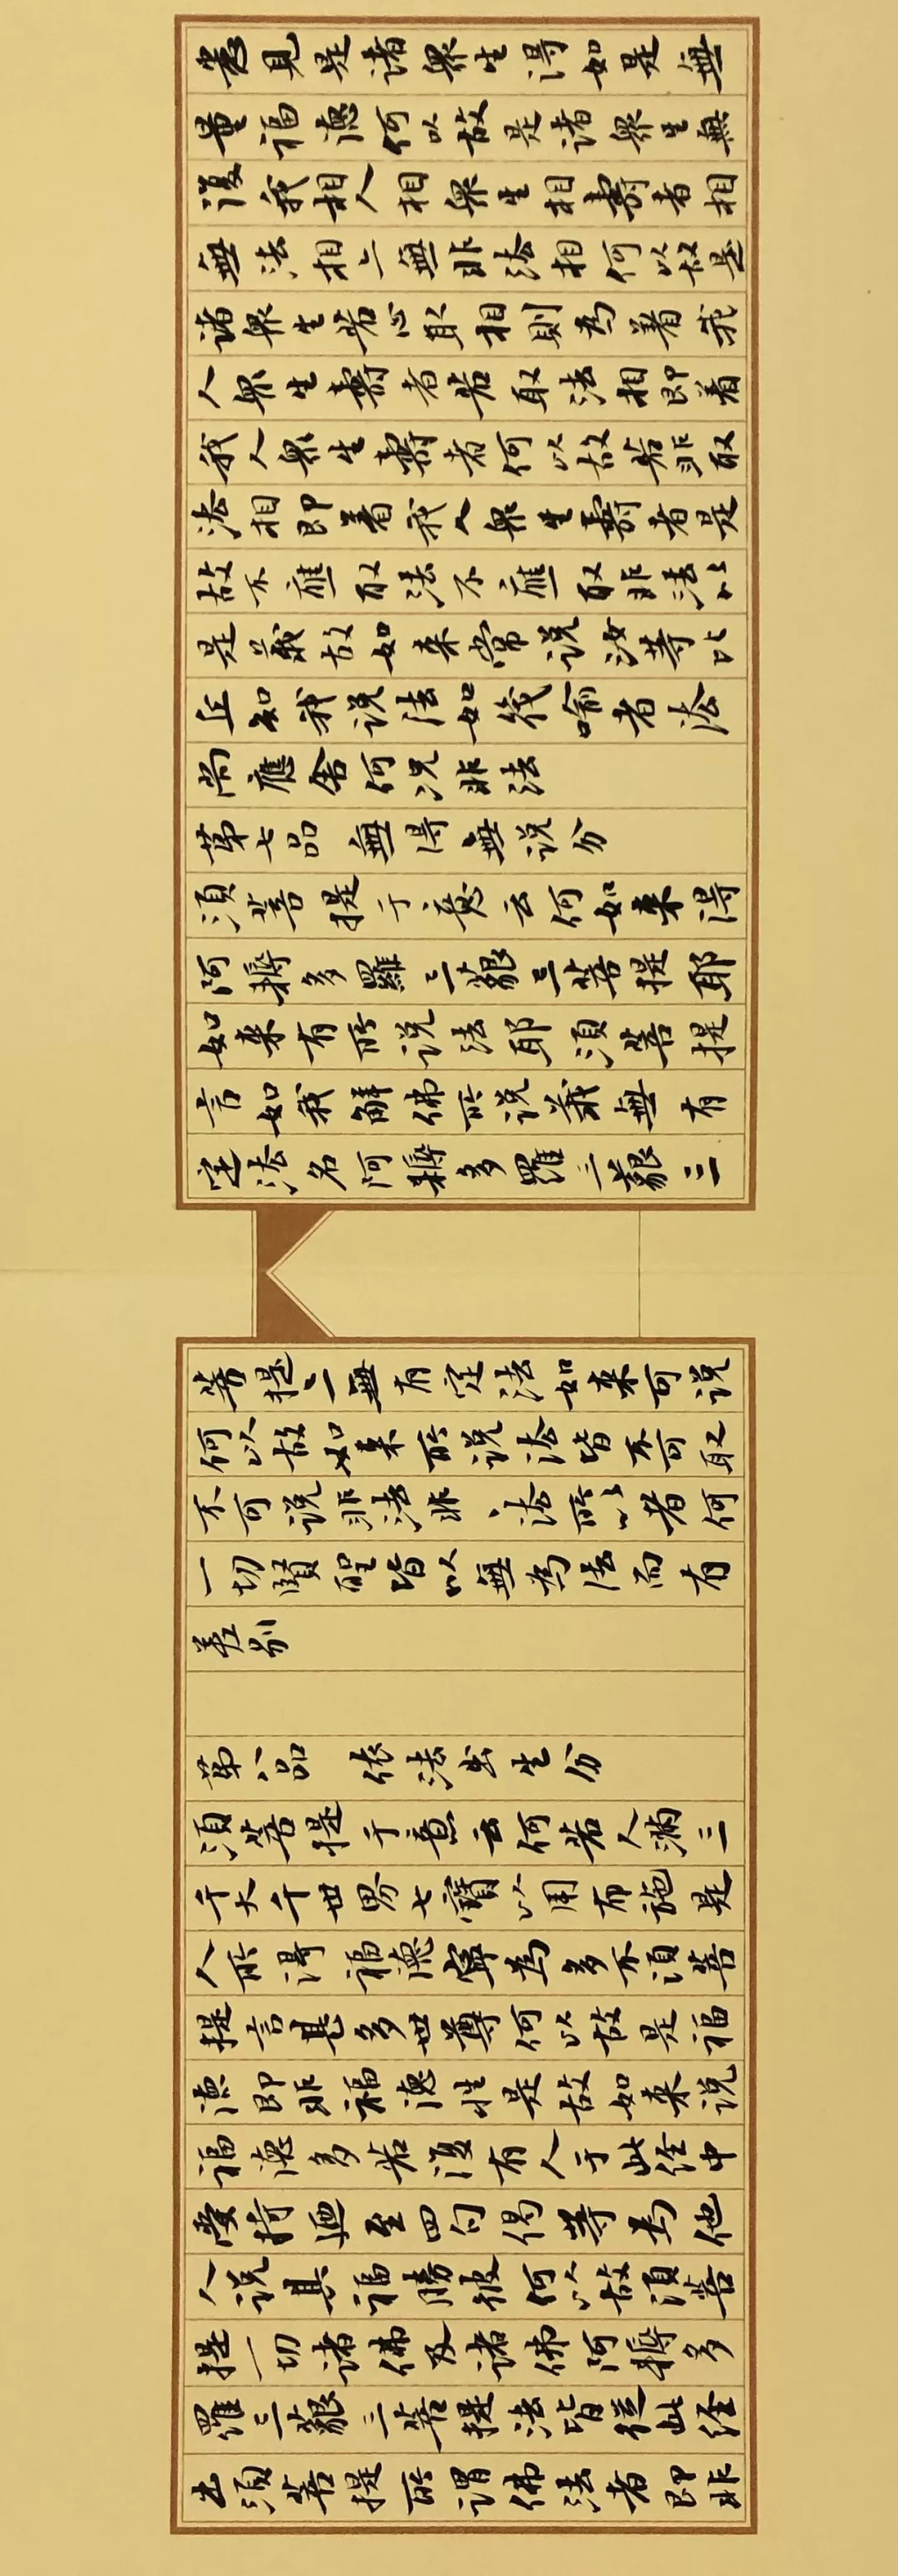 悉見是诸衆生得如是無
量福德何以故是诸衆生無
復我相人相衆生相壽者相
無法相亦無非法相何以故是
诸衆生若心取相則為着我
人衆生壽者若取法相即着
我人衆生壽者何以故若非取
法相即着我人衆生壽者是
故不應取法不應取非法以
是義故如来常说汝等比
丘知我说法如筏喻者法
尚應舍何况非法
第七品 無得無说分
須菩提于意云何如来得
阿耨多羅三藐三菩提耶
如来有所说法耶須菩提
言如我解佛所说義無有
定法名阿耨多羅三藐三
菩提亦無有定法如来可说
何以故如来所说法皆不可取
不可说非法非法所以者何
一切賢聖皆以無為法而有
差别
第八品 依法出生分
須菩提于意云何若人滿三
千大千世界七寶以用布施是
人所得福德寧為多不須菩
提言甚多世尊何以故是福
德即非福德性是故如来说
福德多若復有人于此经中
受持乃至四句偈等為他
人说其福勝彼何以故須菩
提一切诸佛及诸佛阿耨多
羅三藐三菩提法皆從此经
出須菩提所谓佛法者即非